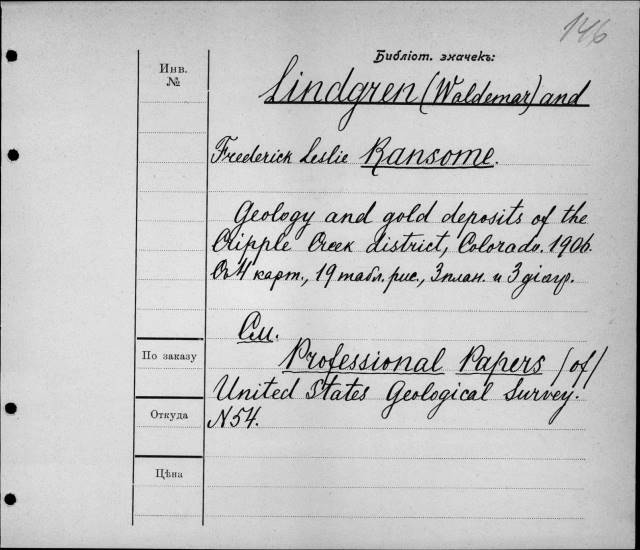 146
Библіот. значекъ:
Инв.
№
Lindgren (Waldemar) and
Frederick Leslie Ransome.
Geology and gold deposits of the
Cripple Creek district, Colorado. 1906.
Съ 4 карт., 19 табл. рис., 3 план. и 3 діагр.
См.
Professional Papers /of/
По заказу
United States Geological Survey.
Откуда
N54.
Цѣна